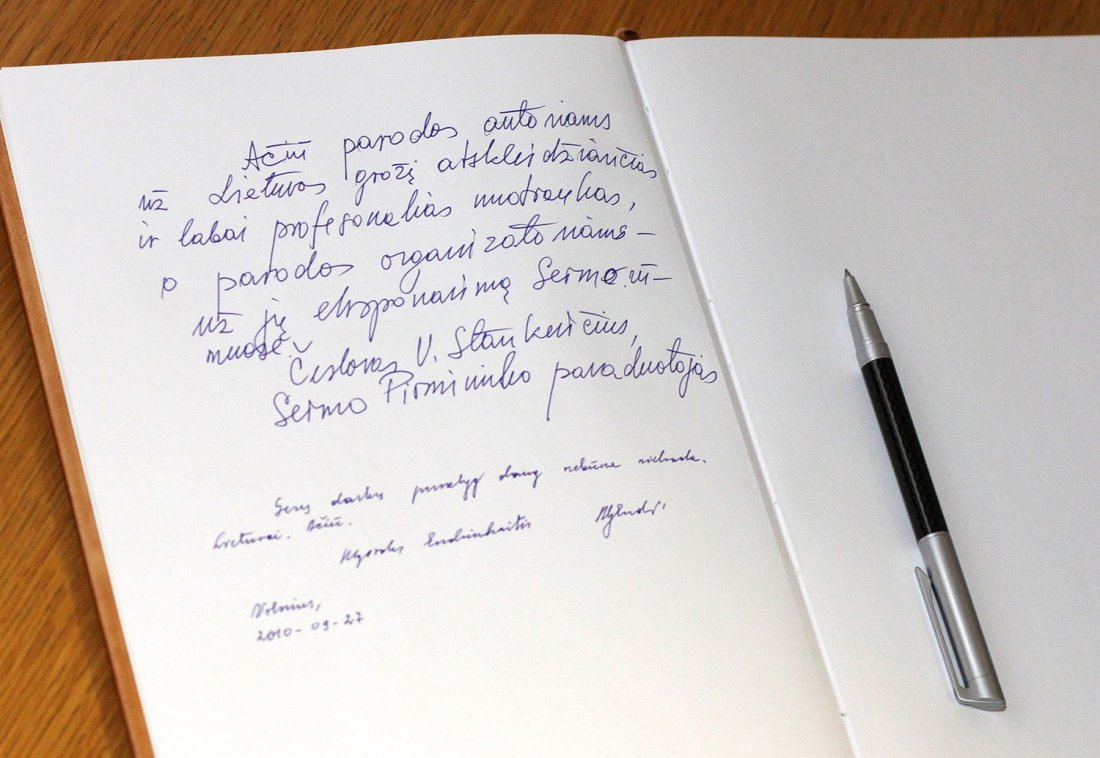 Ačiū parodos autoriams
už Lietuvos grožį atskleidžiančias
ir labai profesonalias nuotraukas,
o parodos organizatoriams –
už jų eksponavimą Seimo rū-
muose.
Česlovas V. Stankevičius,
Seimo Pirmininko pavaduotojas
Gerų darbų daug nebūna niekada.
Lietuvai. Ačiū.
Vilnius,
2010-09-27